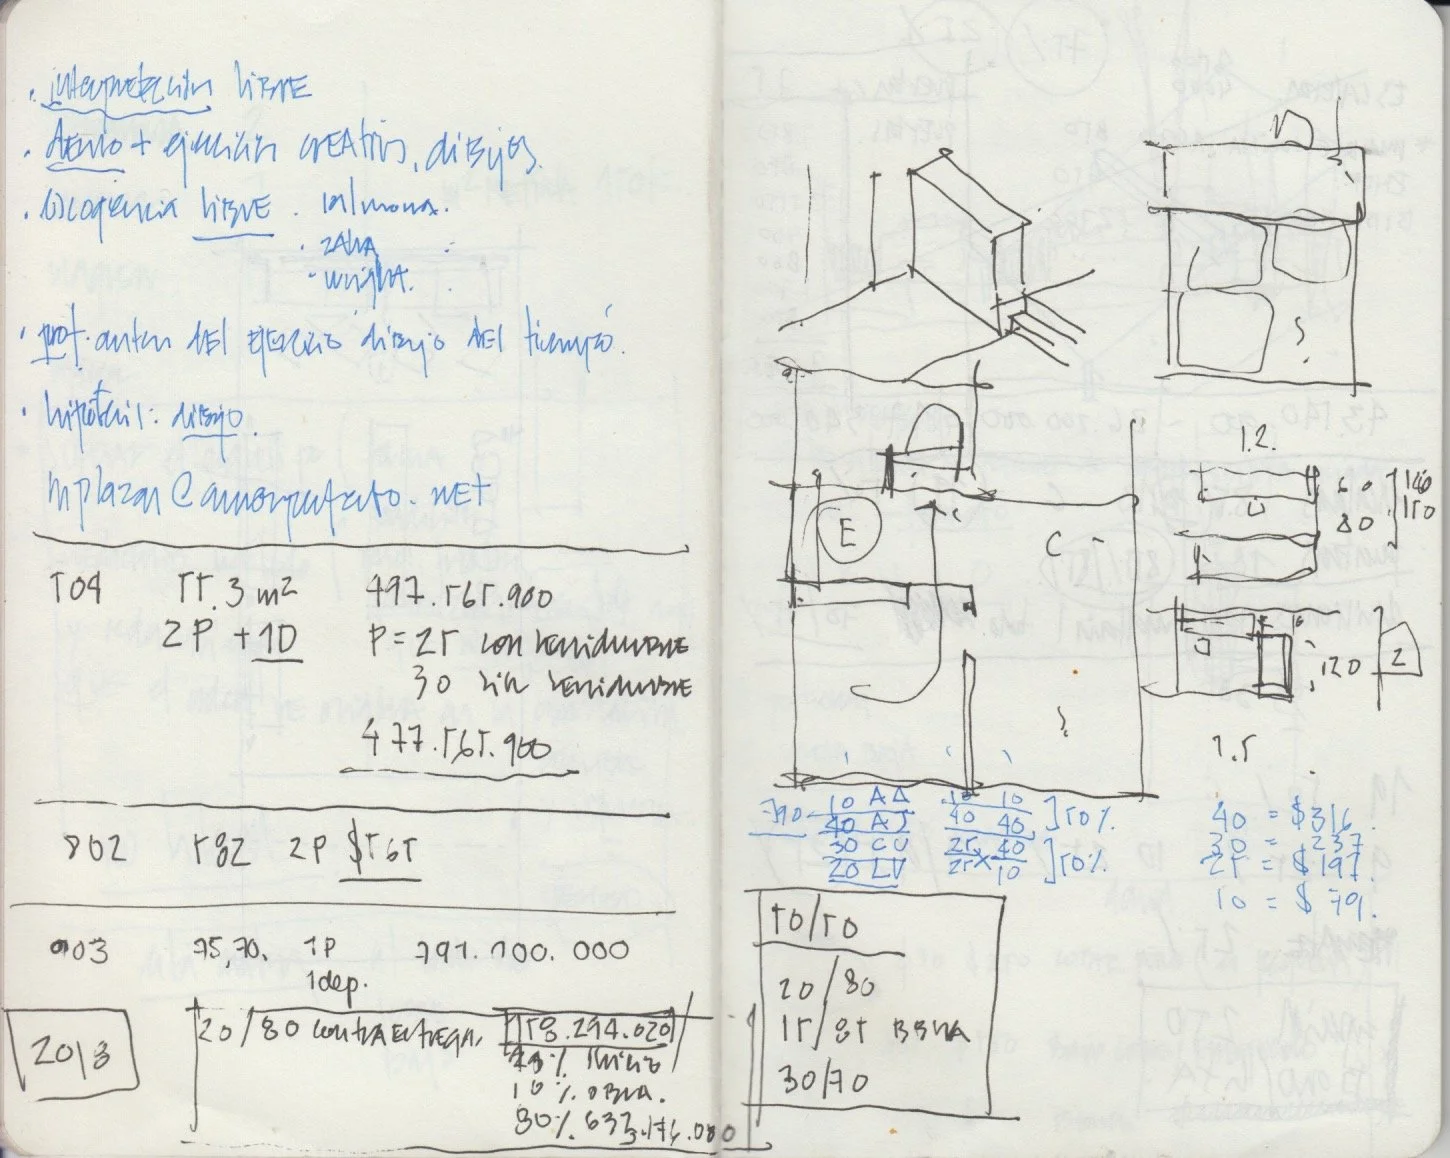 · interpretación LIBRE
· ejercicios CREATIVOS, dibujos.
· escogencia LIBRE · salmona.
· zaha
· wright.
· prof. antes DEL EJERCICIO dibujo DEL tiempo.
· hipótesis: dibujo.
504 55.3 m2 497.565.900
2P + 1D P = 25 con servidumbre
30 sin servidumbre
477.565.900
802 582 2P $565
903 75,70. 1P 791.700.000
1dep.
2018
20/80 contraentrega. 158.294.020
10% OBRA.
80%
E
C
?
?
1.2.
60
80
140
150
120
2
1.5
10 AA 10 10
40 AJ 40 40 ] 50%
30 CU 25 40
20 LV 25 x 10 ] 50%
40 = $316.
30 = 237
25 = $197.
10 = $79.
50/50
20/80
15/85 BBVA
30/70